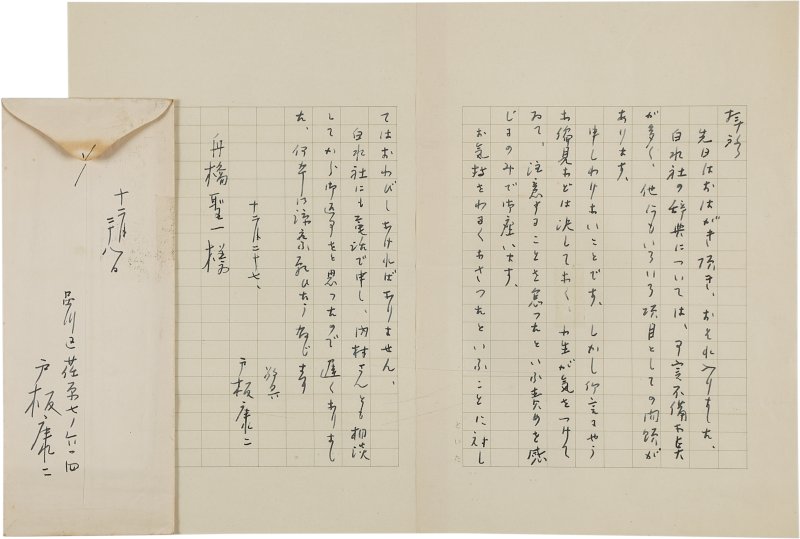 拝啓
先日はおはがき頂き、おそれ入りました。
白水社の辞典については、不備な点
が多く、他にもいろいろ項目としての問題が
あります。
申しわけないことです。しかし仰言るやう
な偏見などは決しておく、小生が気をつけて
ゐて、注意することを怠つたといふ責めを感
じるのみで御座います。
お気持をわるくなさつたといふことに対し
てはおわびしなければなりません。
白水社にも電話で申し、内村さんとも相談
してから御返事をと思つたので遅くなりまし
た、何卒御諒察願ひたう存じます
敬具
十二月二十七、
戸板康二
舟橋聖一様
十二月
二十八日
品川区荏原七ノ六一四
戸板康二
といた